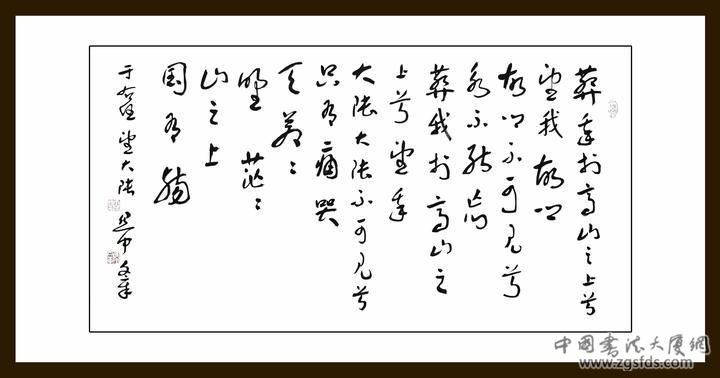 葬我於高山之上兮
望我故乡
故乡不可见兮
永不能忘
葬我於高山之
上兮望我
大陆大陆不可见兮
只有痛哭
天苍苍
野茫茫
山之上
国有殇
于右任望大陆
中国书法大厦網
www.zgsfds.com